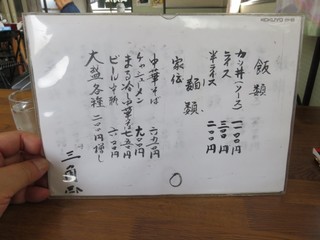 飯類
カツ丼(ソース) 一一〇〇円
ライス 三〇〇円
半ライス 二〇〇円
麺類
家伝
中華そば 六五〇円
チャーシューメン 九〇〇円
まるひや冷し中華 七五〇円
ビール中瓶 六〇〇円
大盛各種 二〇〇円増し
KOKUYO